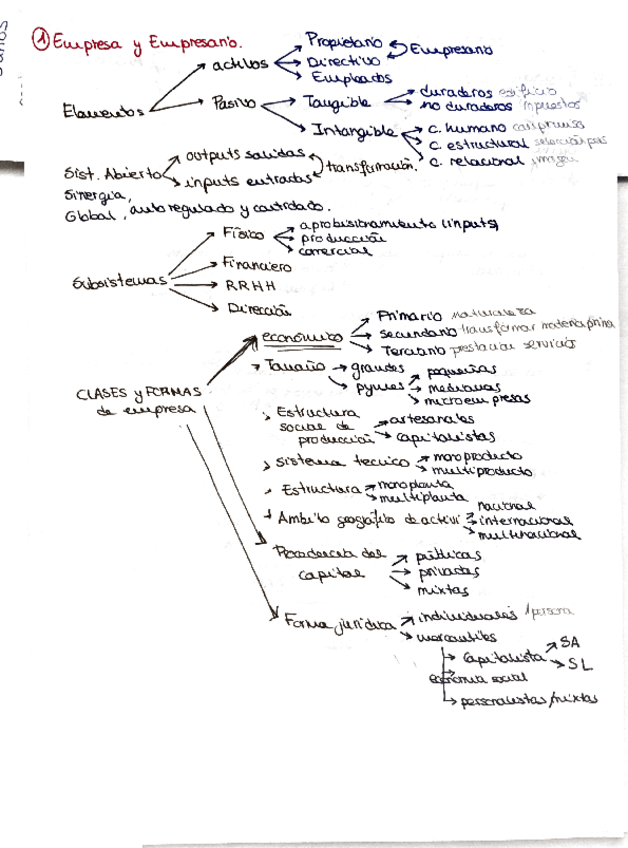 ① Empresa y Empresario.
Elementos
activos
Propietario
Directivo
Empresario
Empleados
Pasivo
Tangible
duraderos edificio
no duraderos impuestos
Intangible
c. humano
c. estructural
c. relacional imagen
Sist. Abierto
outputs salidas
inputs entradas
transformación.
Sinergia,
Global, autoregulado y controlado.
Subsistemas
Físico
aprobisionamiento (inputs)
producción
comercial
Financiero
RRHH
Dirección
CLASES y FORMAS
de empresa
económico
Primario naturaleza
secundario transformar materia prima
Terciario prestación servicios
Tamaño
grandes
pymes
pequeñas
medianas
microempresas
Estructura
social de
producción
artesanales
capitalistas
Sistema tecnico
monoproducto
multiproducto
Estructura
monoplanta
multiplanta
Ambito geográfico de activi
nacional
internacional
multinacional
Procedencia del
capital
públicas
privadas
mixtas
Forma jurídica
individuales 1persona
mercantiles
Capitalista
SA
SL
economía social
personalistas/mixtas